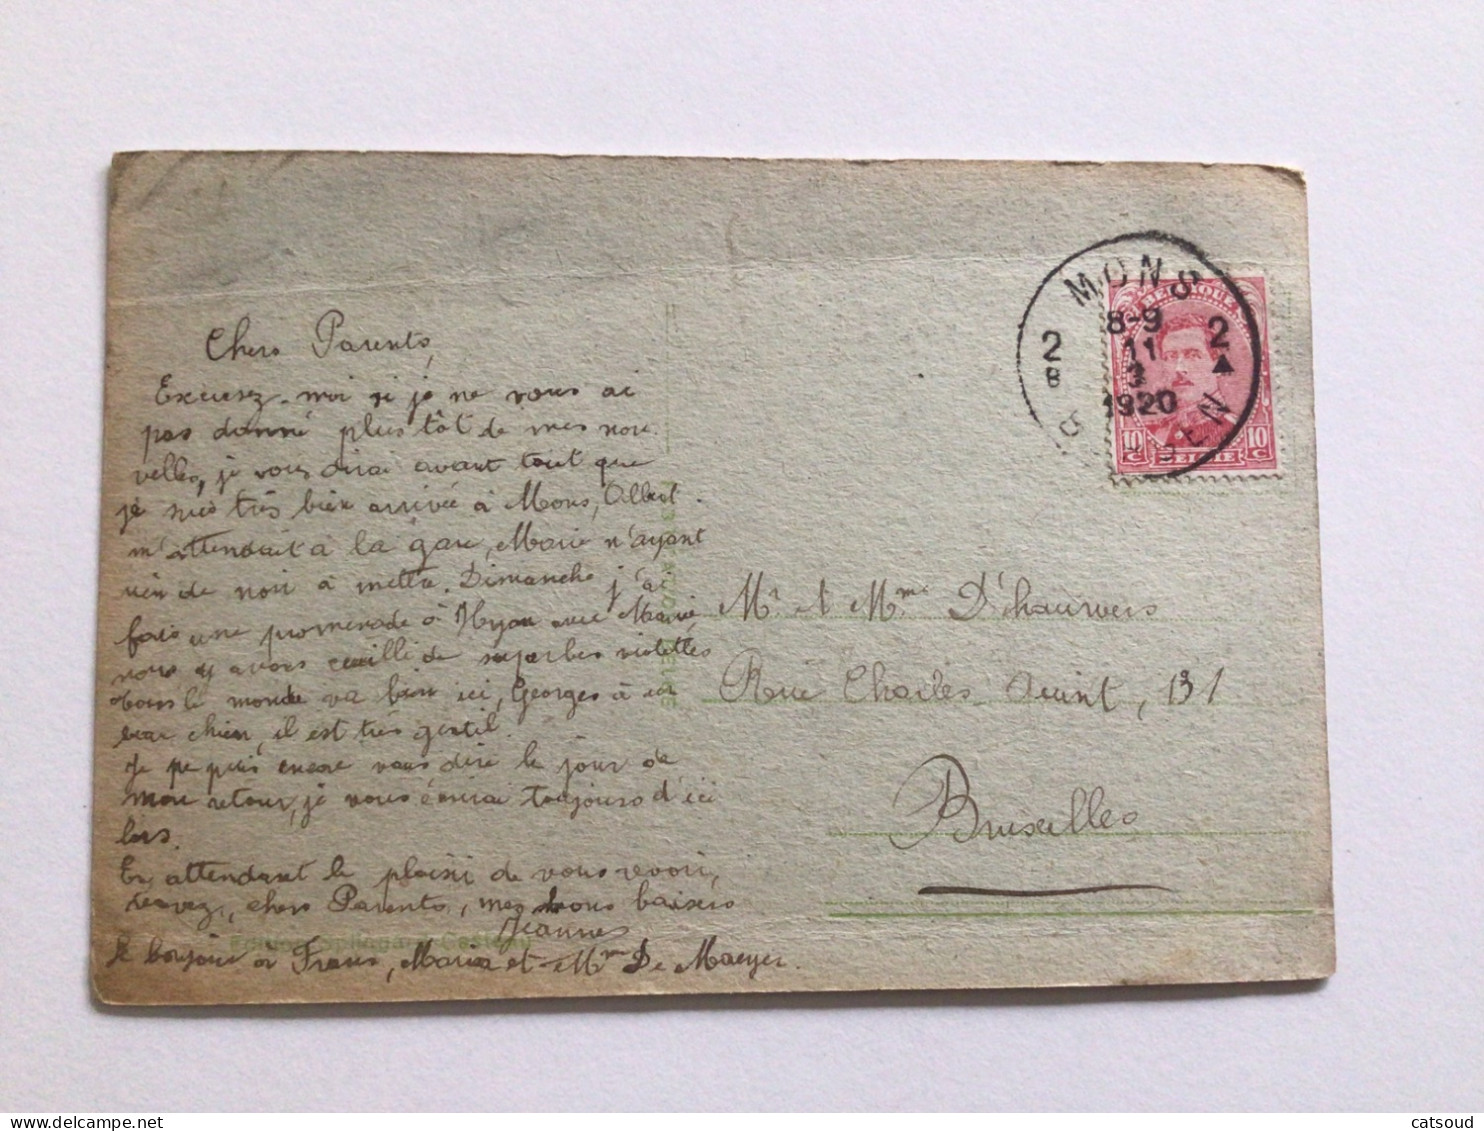 Chers Parents,
Excusez-moi si je ne vous ai
pas donné plus tôt de mes nou
velles, je vous dirai avant tout que
je suis très bien arrivée à Mons, Albert
m'attendait à la gare, Marie n'ayant
rien de noir à mettre. Dimanche j'ai
fais une promenade à Hyon avec Marie
nous y avons cueilli de superbes violettes
tous le monde va bien ici, Georges à un
beau chien, il est très gentil.
Je ne puis encore vous dire le jour de
mon retour, je vous écrirai toujours d'ici
lors.
En attendant le plaisir de vous revoir,
recevez, chers Parents, mes bons baisers
Jeanne
le bonjour à Frans, Maria et Mme De Maeyer.
Mr et Mme D'hauwers
Rue Charles Quint, 131
Bruxelles
MONS
8-9
11
3
1920
2
B
2
BERGEN
BELGIQUE
10 c
10 c
BELGIE
catsoud
delcampe.net